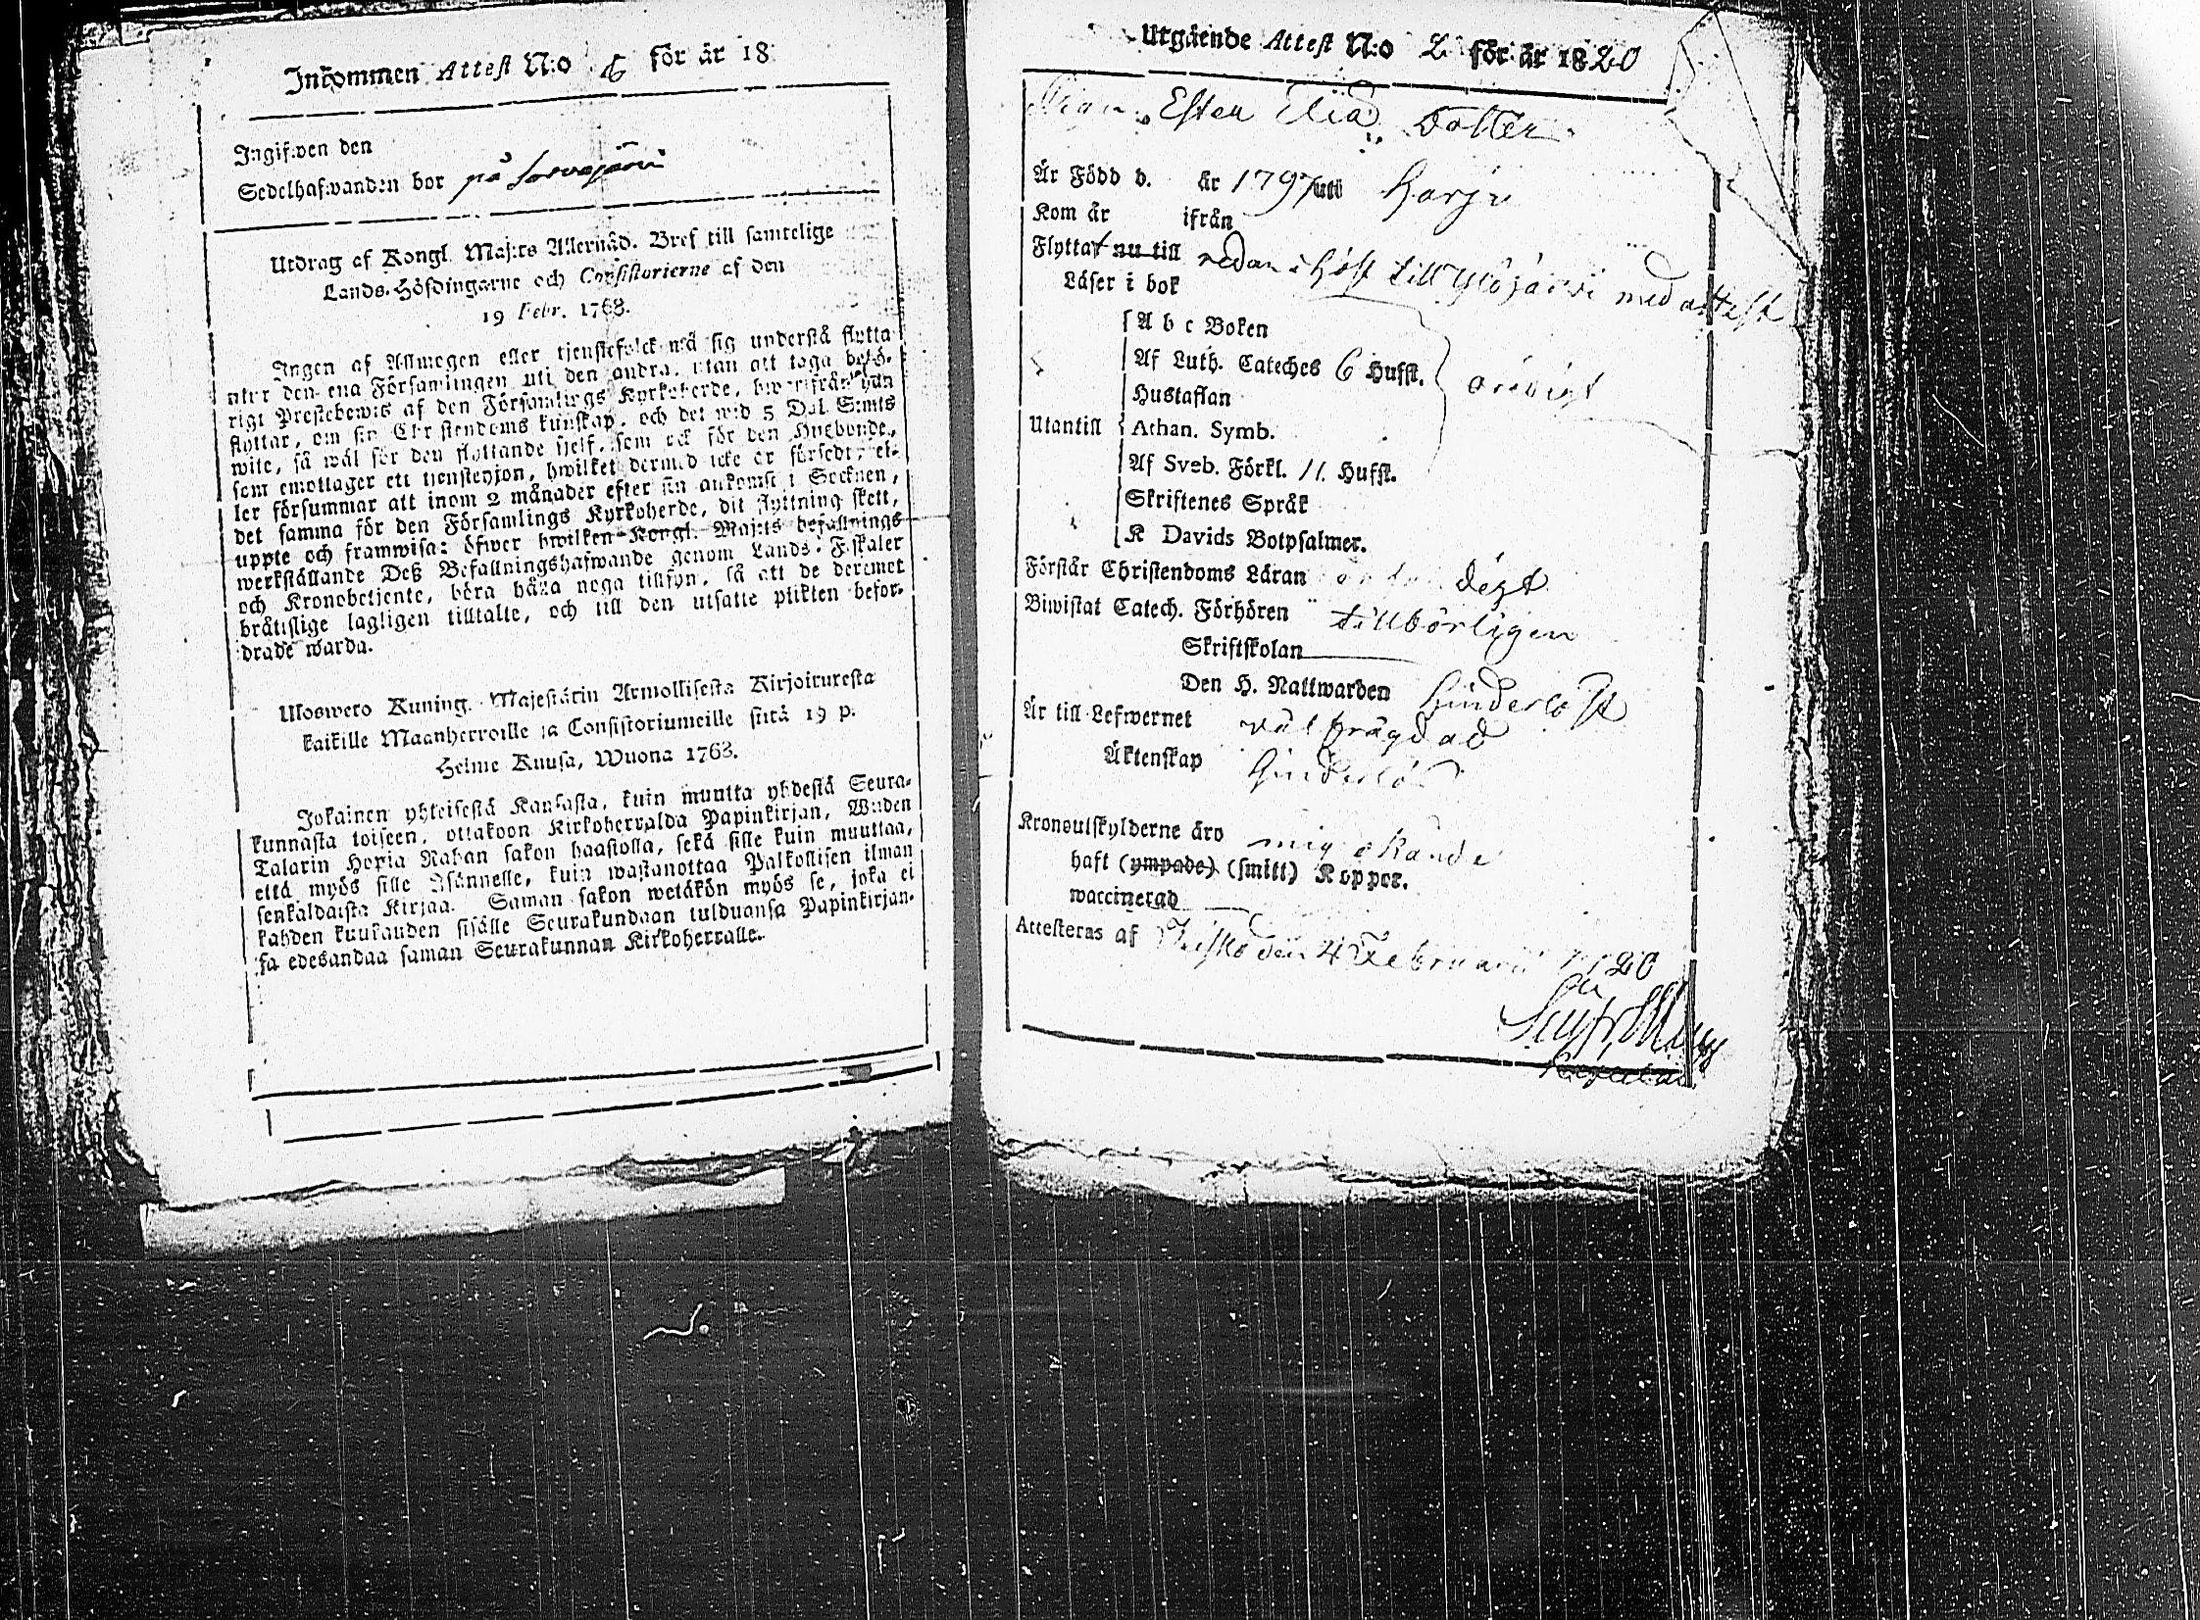 Inkommen Attest N:o 6 för år 18
Ingifwen den
Sedelhafwanden bor på Sorvajärvi
Utdrag af Kongl. Maj:ts Allernåd. Bref till samtelige
Lands-Höfdingarne och Consistorierne af den
19 Febr. 1763.
Ingen af Allmogen eller tjenstefolck må sig understå flytta
utur den ena Församlingen uti den andra, utan att taga behö-
rigt Prestebewis af den Församlings Kyrkoherde, hwarifrån han
flyttar, om sin Christendoms kunskap, och det wid 5 Dal. S:mts
wite, så wäl för den flyttande sjelf, som ock för den Husbonde,
som emottager ett tjenstehjon, hwilket dermed icke är försedt, el-
ler försummar att inom 2 månader efter sin ankomst i Socknen,
det samma för den Församlings Kyrkoherde, dit flyttning skett,
uppte och framwisa: öfwer hwilken Kongl. Maj:ts befallnings
werkställande Deß Befallningshafwande genom Lands-Fiskaler
och Kronobetjente, böra hålla noga tillsyn, så att de deremot
bråttslige lagligen tilltalte, och till den utsatte plikten befor-
drade warda.
Uloswero Kuning. Majestätin Armollisesta Kirjoituxesta
kaikille Maanherroille ja Consistoriumeille siitä 19 p.
Helme Kuusa, Wuona 1763.
Jokainen yhteisestä Kansasta, kuin muutta yhdestä Seura-
kunnasta toiseen, ottakoon Kirkoherralda Papinkirjan, Wiiden
Talarin Hopia Rahan sakon haastolla, sekä sille kuin muuttaa,
että myös sille Isännelle, kuin wastanottaa Palkollisen ilman
senkaldaista Kirjaa. Saman sakon wetäkön myös se, joka ei
kahden kuukauden sisälle Seurakundaan tulduansa Papinkirjan-
sa edesandaa saman Seurakunnan Kirkoherralle.
Utgående Attest N:o 2 för år 1820
Pigan Ester Elias Dotter
Är Född d. år 1797 uti Harju
Kom år ifrån
Flyttat nu till redan i höst till Ylöjärvi med attest
Läser i bok
A b c Boken
Af Luth. Cateches 6 Hufst.
Hustaflan
Utantill Athan. Symb.
Af Sveb. Förkl. 11. Hufst.
Skriftenes Språk
K Davids Botpsalmer.
Förstår Christendoms Läran
Biwistat Catech. Förhören tillbörligen
Skriftskolan
Den H. Nattwarden hinderlöst
Är till Lefwernet välfrägdad
Äktenskap hinderlös
Kronoutskylderne äro mig okände
haft (ympade) (smitt) Koppor.
waccinerad
Attesteras af den 4 Februarii 1820